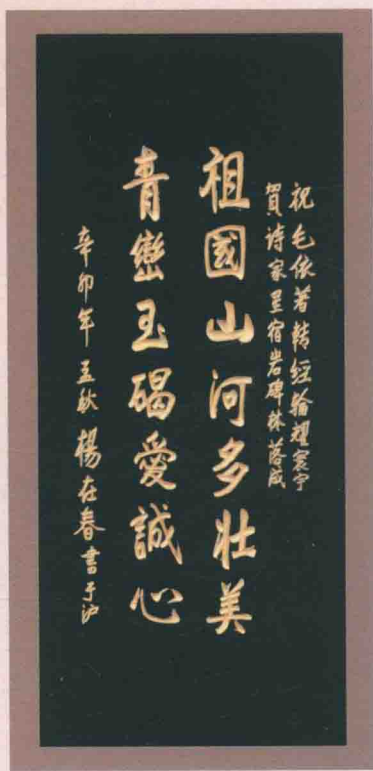 祝毛依著转经輪耀寰宇
賀诗家星宿岩碑林落成
祖國山河多壮美
青巒玉碣愛誠心
辛卯年孟秋楊在春書于沪